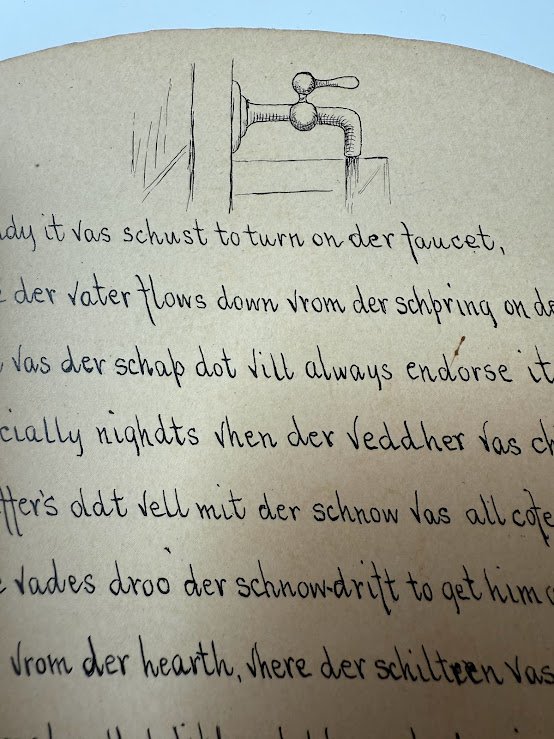 dy it vas schust to turn on der faucet,
der vater flows down vrom der schpring on
vas der schap dot vill always endorse it
cially nighdts vhen der veddher vas
ffer's oldt vell mit der schnow vas all
vades droo der schnow-drift to get him
vrom der hearth, vhere der schiltren vas